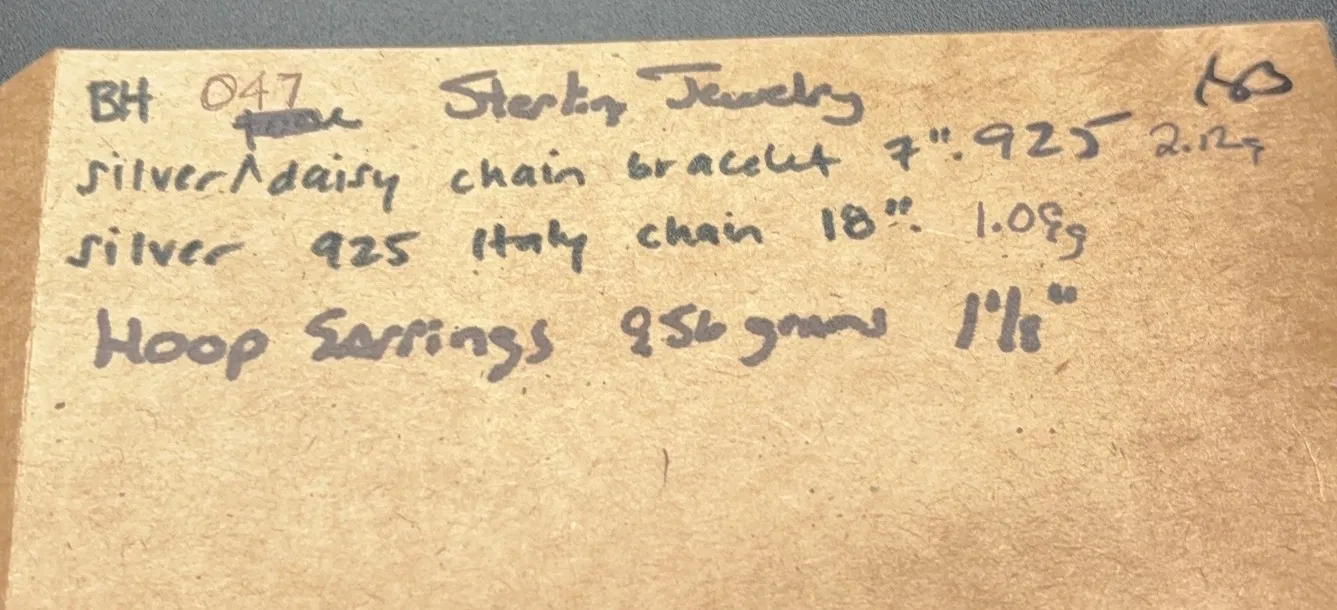 BH 047 Sterling Jewelry
silver ^ daisy chain bracelet 7". 925 2.12g
silver 925 Italy chain 18". 1.09g
Hoop Earrings grams 1 1/8"